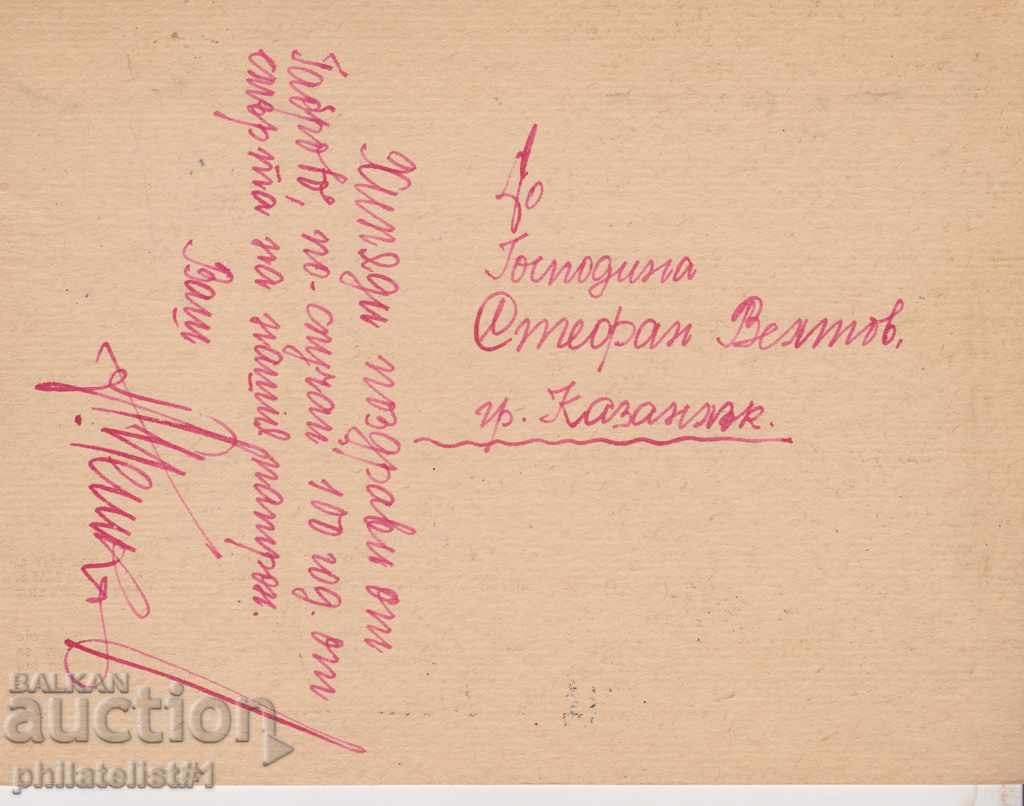 Хиляди поздрави от
Габрово, по-случай 100 год. от
смърта на нашив патрон.
Ваш
До
Господина
Стефан Вехтов,
гр. Казанлък.
BALKAN
auction
philatelist#1